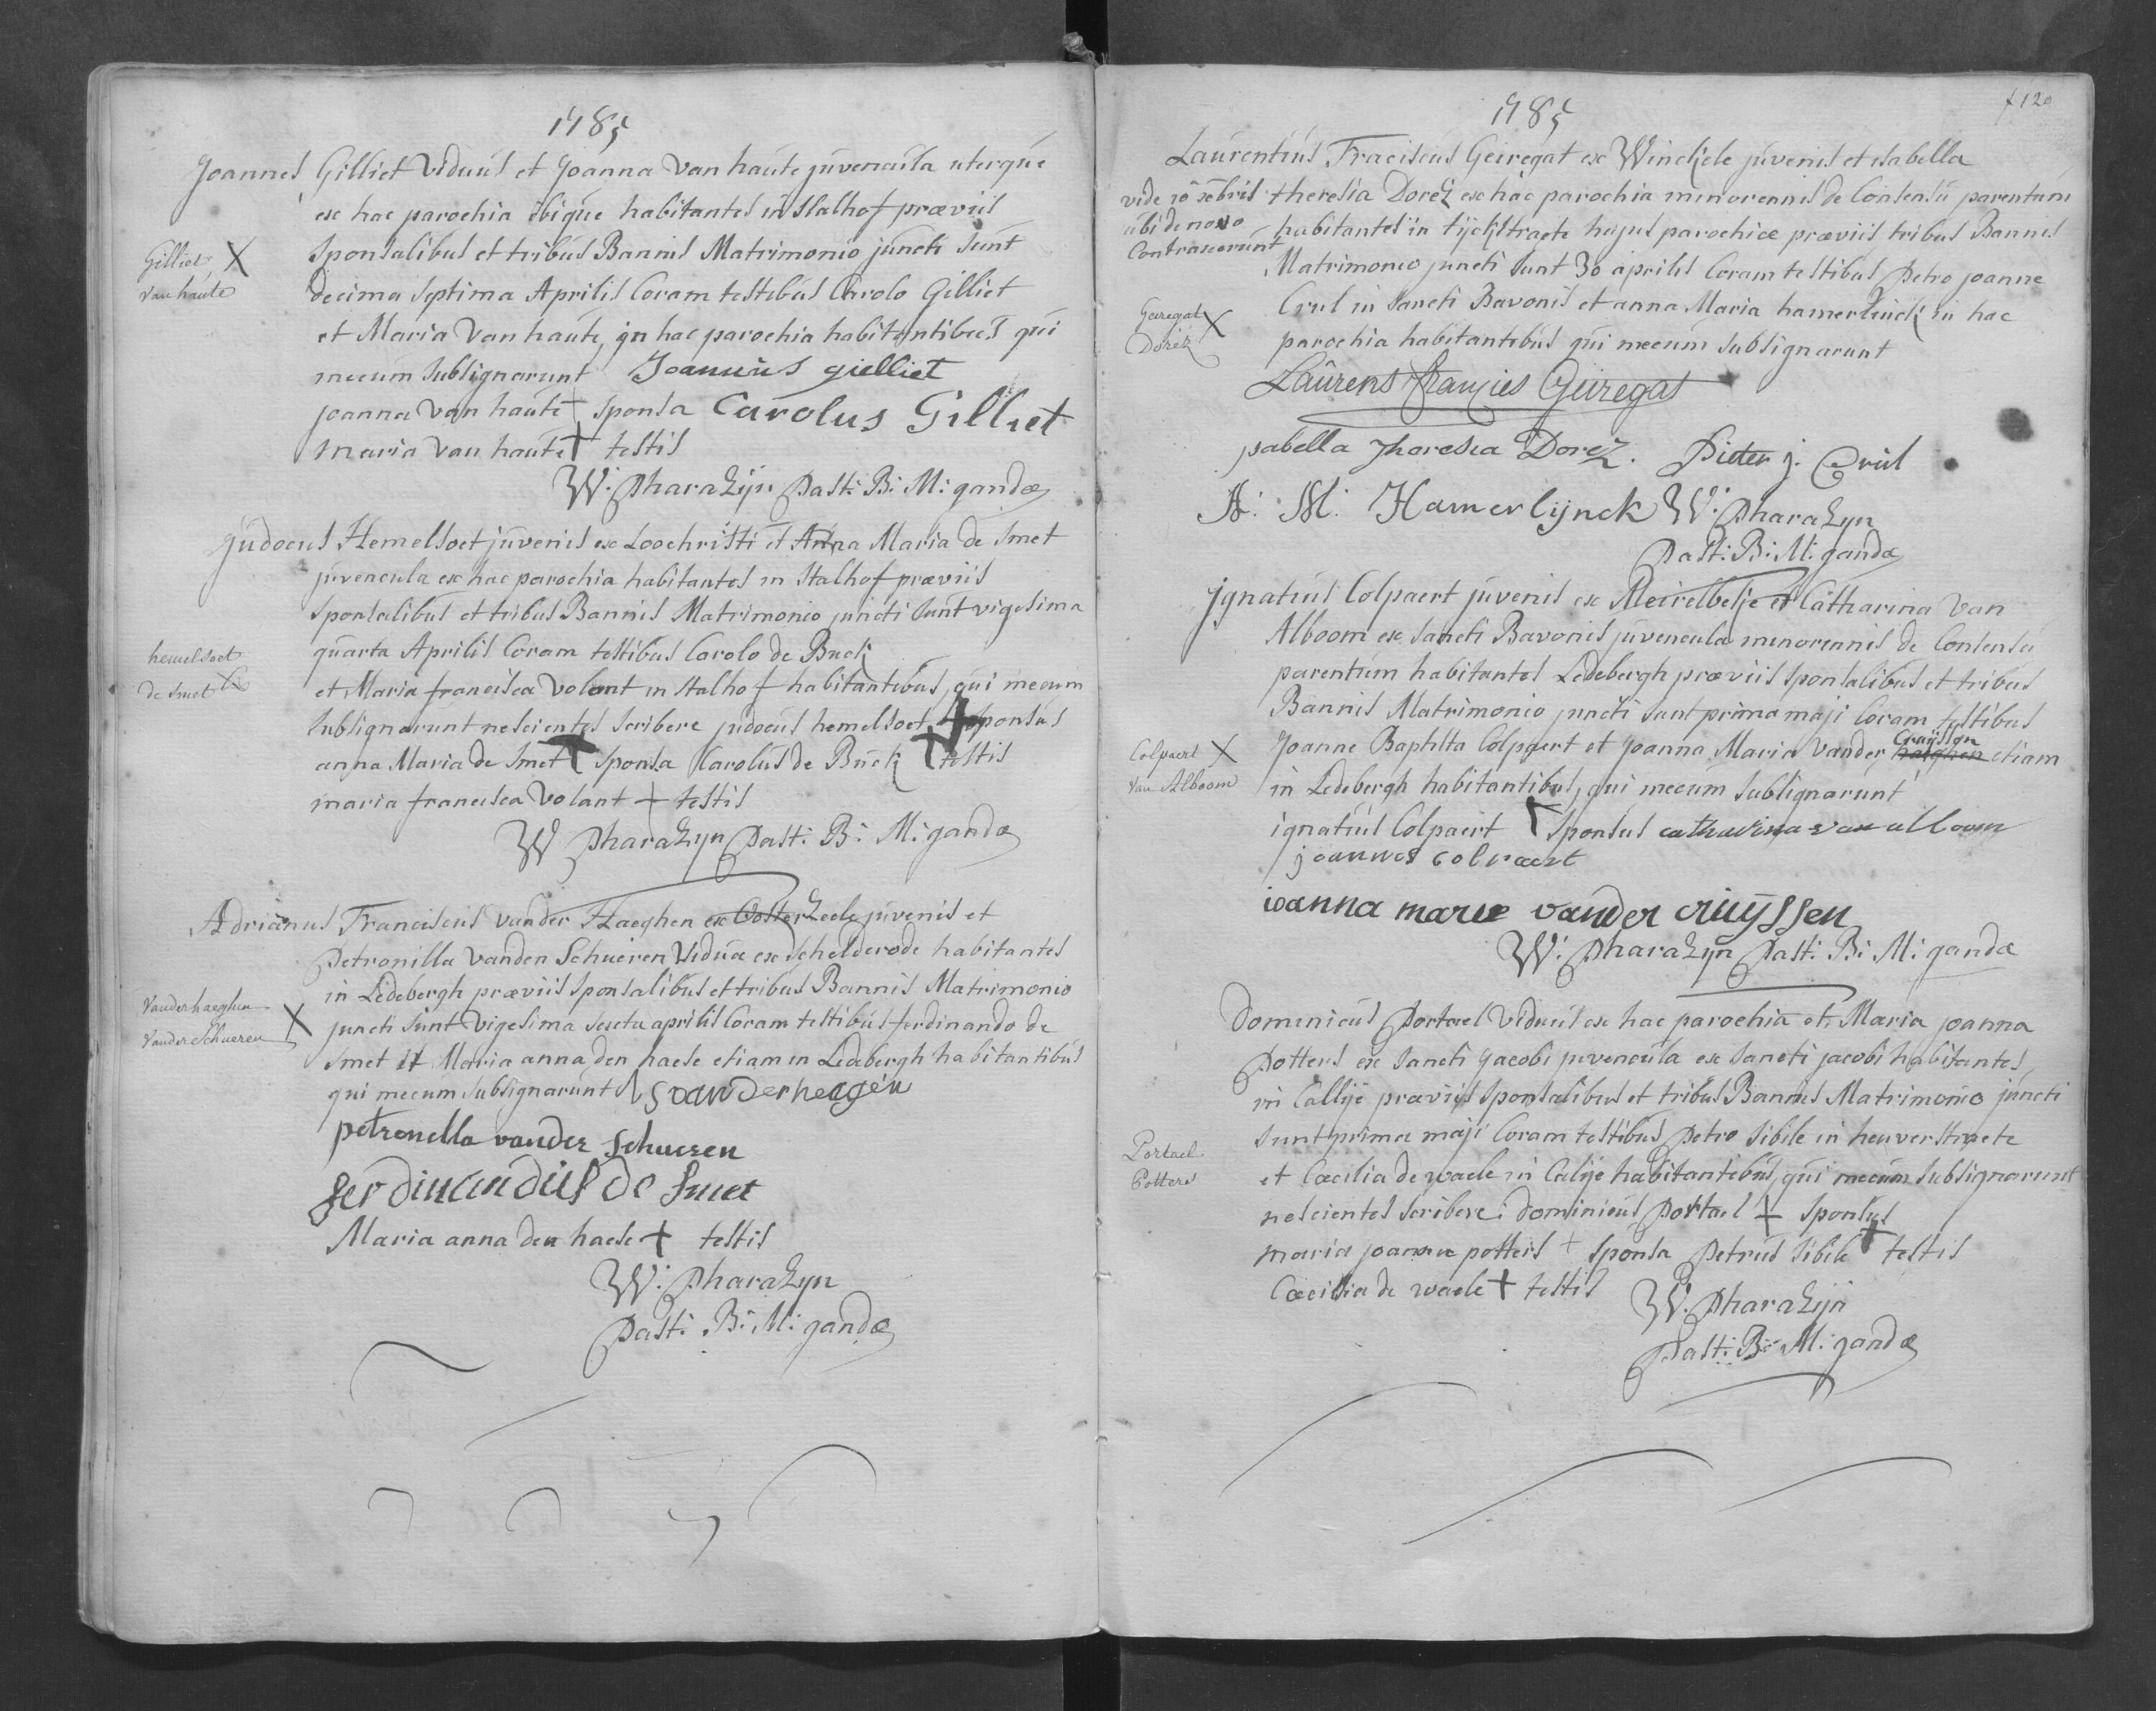 1785
Joannes Gilliet viduus et Joanna Van haute juvencula uterque
ex hac parochia ibique habitantes in Stalhof præviis
Sponsalibus et tribus Bannis Matrimonio juncti sunt
Gilliet X
Van haute
decima septima Aprilis Coram testibus Carolo Gilliet
et Maria Van haute in hac parochia habitantibus qui
mecum subsignarunt Joannes gielliet
joanna Van haute + sponsa Carolus Gilliet
maria van haute + testis
W: Pharazijn Past: B: M: gandæ
judocus Hemelsoet juvenis ex Loochristi et Anna Maria de Smet
juvencula ex hac parochia habitantes in Stalhof præviis
sponsalibus et tribus Bannis Matrimonio juncti sunt vigesima
hemelsoet
de Smet X
quarta Aprilis Coram testibus Carolo de Buck
et Maria francisca Volant in Stalhof habitantibus, qui mecum
subsignarunt nescientes scribere judocus hemelsoet + sponsus
anna Maria de Smet + sponsa Carolus de Buck + testis
maria francisca Volant + testis
W Pharazyn Past: B: M: gandæ
Adrianus Franciscus vander Haeghen ex Oosterzeele juvenis et
Petronilla vanden Schueren Vidua ex Schelderode habitantes
in Ledebergh præviis sponsalibus et tribus Bannis Matrimonio
Vanderhaeghen
Vander Schueren X
juncti sunt Vigesima sexta aprilis Coram testibus ferdinando de
Smet et Maria anna den haese etiam in Ledebergh habitantibus
qui mecum subsignarunt vanderheagen
petronella vander schueren
ferdinandus de Smet
Maria anna den haese + testis
W: Pharazyn
Past: B: M: gandæ
1785
f 120
Laurentius Fraciscus Geiregat ex Winckele juvenis et isabella
vide 10 xbris
ubi de novo
Contraxerunt
theresia Dorez ex hac parochia minorennis de Consensu parentum
habitantes in tyckstraete hujus parochiæ præviis tribus Bannis
Matrimonio juncti sunt 30 aprilis Coram testibus Petro joanne
Geiregat X
Dorez
Crul in Sancti Bavonis et anna Maria hamerlinck in hac
parochia habitantibus qui mecum subsignarunt
Laurens franjies Geiregat
ysabella Theresia Dorez. Pieter j. Crul
A: M: Hamerlijnck W: Pharazyn
Past: B: M: gandæ
jgnatius Colpaert juvenis ex Meirelbeke et Catharina Van
Alboom ex Sancti Bavonis juvencula minorennis de Consensu
parentum habitantes Ledebergh præviis sponsalibus et tribus
Bannis Matrimonio juncti sunt prima maji Coram testibus
Colpaert X
Van Alboom
Joanne Baptista Colpaert et Joanna Maria Vander haeghen Cruijssen etiam
in Ledebergh habitantibus, qui mecum subsignarunt
ignatius Colpaert + sponsus catharina van alboom
joannes colpaert
ioanna marie vander cruÿssen
W: Pharazyn Past: B: M: gandæ
Dominicus Portael Viduus ex hac parochia et Maria joanna
Potters ex Sancti Jacobi juvencula ex Sancti jacobi habitantes
in Callije præviis Sponsalibus et tribus Bannis Matrimonio juncti
Portael
Potters
Sunt prima maji Coram testibus Petro Sibile in heuverstraete
et Cæcilia de waele in Calije habitantibus, qui mecum subsignarunt
nescientes scribere: Dominicus Portael + sponsus
maria joanna potters + sponsa Petrus Sibile + testis
Cæcilia de waele + testis W. Pharazijn
Past: B: M: gandæ